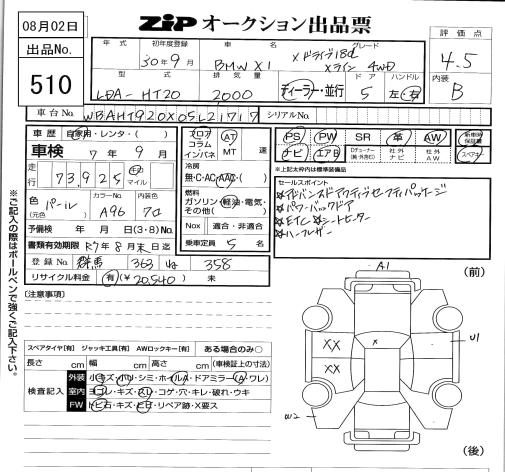 08月02日
ZIP オークション出品票
出品No.
510
年式
初年度登録
車名
グレード
評価点
30年9月
BMW X1
xドライブ18d
xライン 4WD
4.5
型式
排気量
ドア
ハンドル
内装
LDA-HT20
2000
ディーラー・並行
5
左・右
B
車台No.
WBAHT920X05L21717
シリアルNo.
車歴
自家用・レンタ・( )
車検
7年9月
走行
73,925
キロ
マイル
色
(元色)
パール
カラーNo.
A96
内装色
予備検
年 月 日(3・8)No.
書類有効期限
R7年8月末日迄
登録No.
群馬
363
358
リサイクル料金
有(¥20,540)
未
フロア
コラム
インパネ
AT
MT
速
冷房
無・C・AC・AAC・( )
燃料
ガソリン・軽油・電気・
その他( )
Nox
適合・非適合
乗車定員
5名
PS
PW
SR
革
AW
新車時保証書
ナビ
エアB
Dチューナー
社外ナビ
社外AW
スペアキー
※上記太枠内は標準装備品
セールスポイント
☆アドバンスドアクティブセーフティパッケージ
☆パワーバックドア
☆ETC ☆シートヒーター
☆ハーフレザー
※ご記入の際はボールペンで強くご記入下さい。
[注意事項]
スペアタイヤ[有] ジャッキ工具[有] AWロックキー[有] ある場合のみ○
長さ cm 幅 cm 高さ cm (車検証上の寸法)
検査記入
外装
小キズ・小U・シミ・ホイルA・ドアミラー(A・ワレ)
室内
ヨゴレ・キズ・スレ・コゲ・穴・キレ・破れ・ウキ
FW
トビ石・キズ・ヒビ・リペア跡・X要ス
A1
(前)
U1
XX
x
XX
U2
(後)